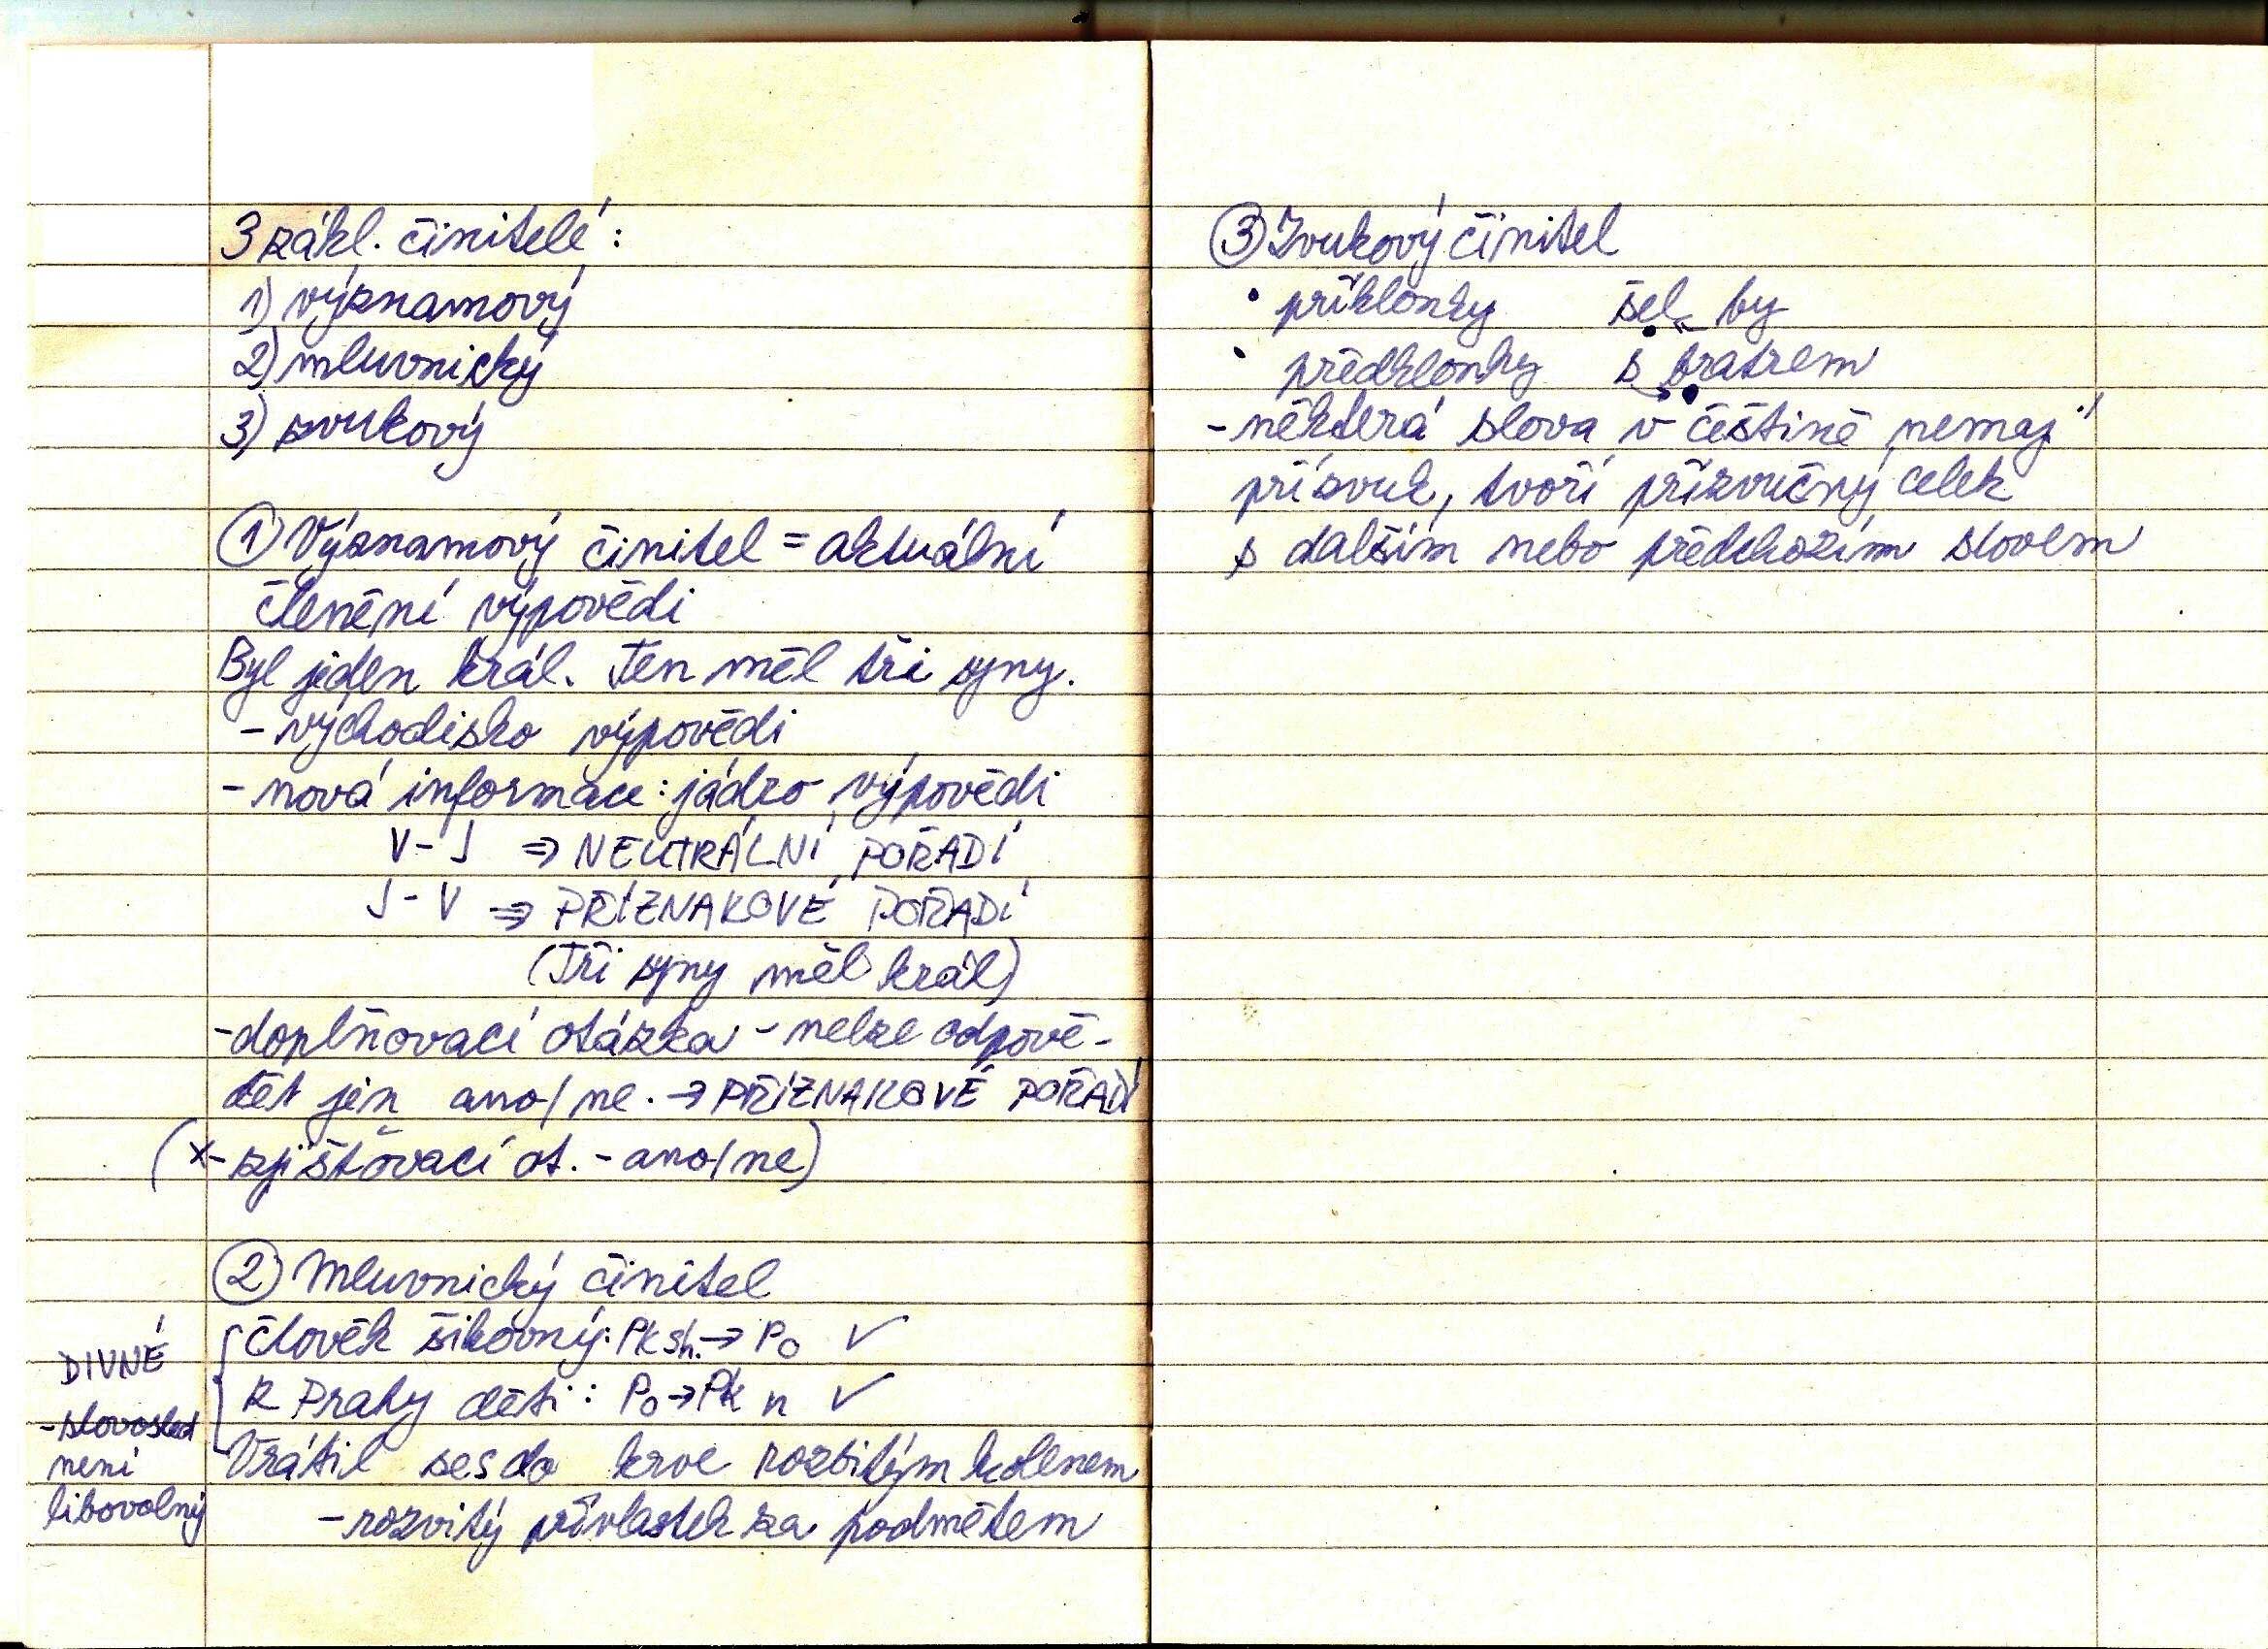 3 zákl. činitelé:
1) významový
2) mluvnický
3) zvukový
① Významový činitel = aktuální
členění výpovědi
Byl jeden král. Ten měl tři syny.
- východisko výpovědi
- nová informace: jádro výpovědi
V - J ⇒ NEUTRÁLNÍ POŘADÍ
J - V ⇒ PŘÍZNAKOVÉ POŘADÍ
(Tři syny měl král)
- doplňovací otázka - nelze odpově-
dět jen ano/ne. → PŘÍZNAKOVÉ POŘADÍ
(x- zjišťovací ot. - ano/ne)
② Mluvnický činitel
člověk šikovný: PK sh. → Po ✓
z Prahy děti: Po → PK n ✓
Vrátil se s do krve rozbitým kolenem
- rozvitý přívlastek za podmětem
DIVNÉ
- slovosled
není
libovolný
③ Zvukový činitel
• příklonky šel by
• předklonky s bratrem
- některá slova v češtině nemají
přízvuk, tvoří přízvučný celek
s dalším nebo předchozím slovem